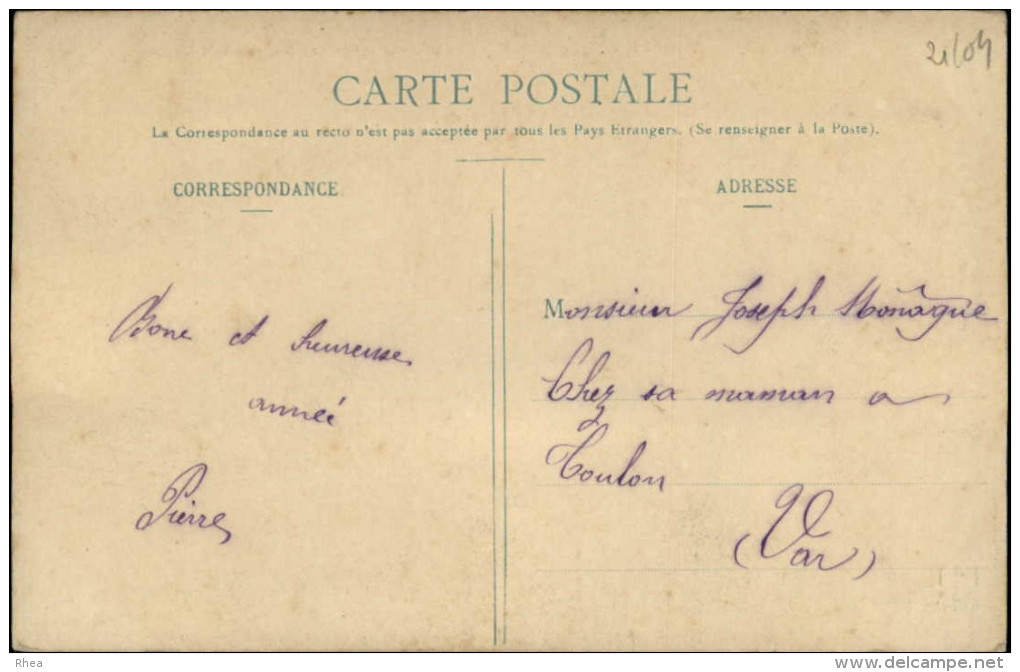 21/04
CARTE POSTALE
La Correspondance au recto n'est pas acceptée par tous les Pays Etrangers. (Se renseigner à la Poste).
CORRESPONDANCE
Bone et heureuse
anneé
Pierre
ADRESSE
Monsieur Joseph Monague
Chez sa maman a
Toulon
(Var)
Rhea
www.delcampe.net